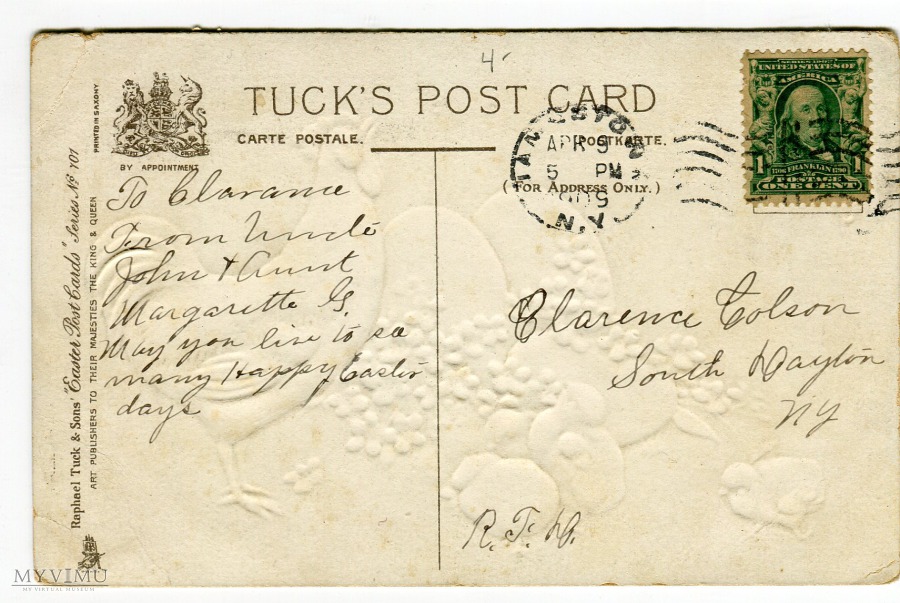 4-
TUCK'S POST CARD
CARTE POSTALE. POSTKARTE.
(FOR ADDRESS ONLY.)
BY APPOINTMENT
PRINTED IN SAXONY
Raphael Tuck & Sons' "Easter Post Cards" Series No 101
ART PUBLISHERS TO THEIR MAJESTIES THE KING & QUEEN
APR 9
5 PM
N.Y.
SERIES 1902
UNITED STATES OF
AMERICA
1 1
1706 FRANKLIN 1790
POSTAGE
ONE CENT
To Clarance
From Uncle
John & Aunt
Margarette G.
May you live to see
many Happy Easter
days
Clarence Colson
South Dayton
NY
R.F.D.
MYVIMU
MY VIRTUAL MUSEUM